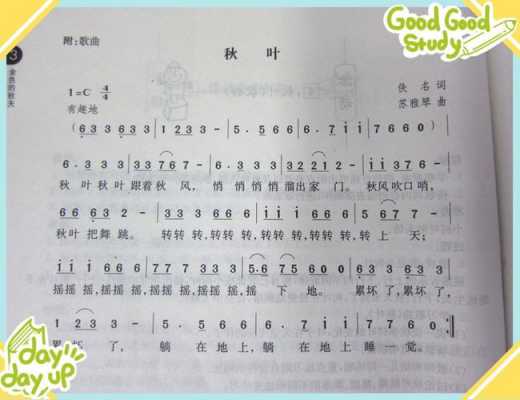 Good Good Study
附:歌曲
秋 叶
3
金色的秋天
1=C 4/4
佚 名 词
有趣地
苏雅琴 曲
(6 3 3 6 3 3 | 1 2 3 3 - | 5. 5 6 6 | 6. 7 i i | 7 7 6 6 0)|
6. 3 3 3 | 3 3 7 6 7 - | 6. 3 3 3 | 3 2 2 1 2 - | i i 3 7 6 -|
秋 叶 秋 叶 跟着 秋 风, 悄 悄 悄 悄 溜出 家 门。 秋风 吹口 哨,
6 6 6 3 2 - | 3 3 3 6 6 6 | i i i 6 6 6 | 5 6 7 7 -|
秋叶 把舞 跳。 转转 转, 转转 转, 转转 转, 转转 转, 转 上 天;
i i i 6 6 6 | 7 7 7 3 3 3 | 5 6 7 5 6 0 0 | 6 3 3 6 3 3|
摇摇 摇, 摇摇 摇, 摇摇 摇, 摇摇 摇, 摇 下 地。 累坏 了, 累坏 了,
1 2 3 3 - | 5. 5 6 6 | 6. 7 i i | 7 7 6 0 :|
累 坏 了, 躺 在 地 上, 躺 在 地 上 睡 一 觉。
day day up